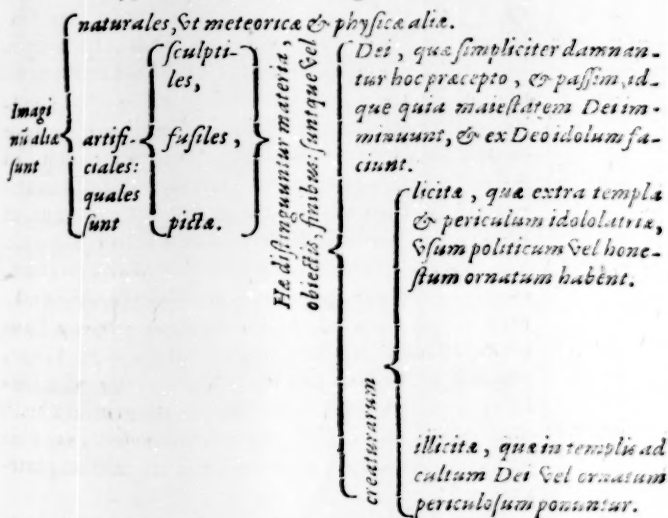 naturales, vt meteoricæ & physicæ aliæ.
Imagi
nũ aliæ
sunt
artifi-
ciales:
quales
sunt
sculpti-
les,
fusiles,
pictæ.
Hæ distinguuntur materia,
obiectis, finibus: suntque vel
Dei, quæ simpliciter damnan-
tur hoc præcepto, & passim, id-
que quia maiestatem Dei im-
minuunt, & ex Deo idolum fa-
ciunt.
creaturarum
licitæ, quæ extra templa
& periculum idololatriæ,
vsum politicum vel hone-
stum ornatum habent.
illicitæ, quæ in templis ad
cultum Dei vel ornatum
periculosum ponuntur.